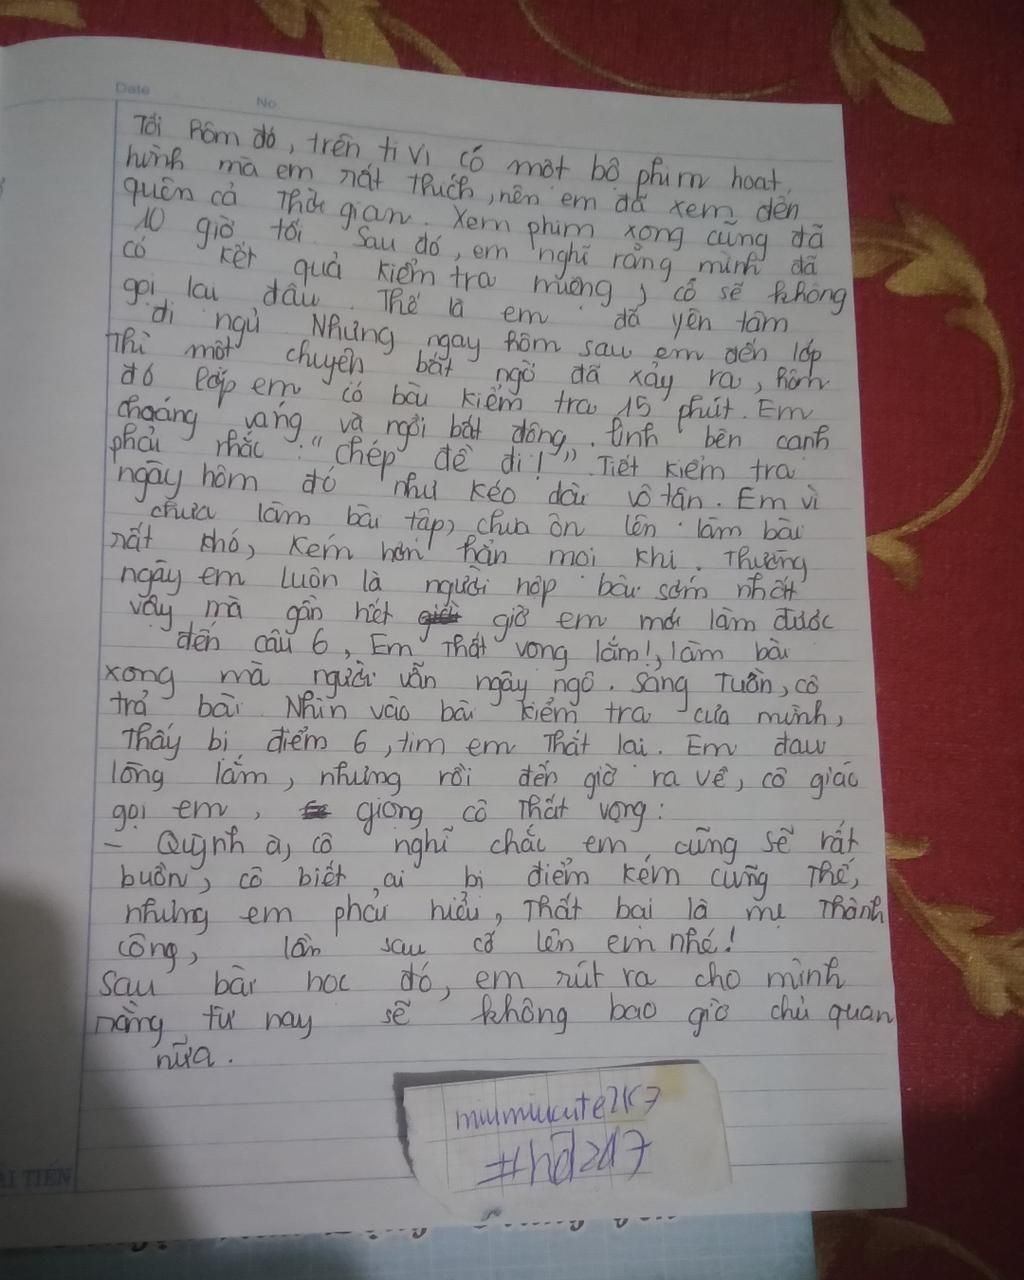 Date No
Tối hôm đó, trên ti vi có một bộ phim hoạt
hình mà em rất thích, nên em đã xem đến
quên cả thời gian. Xem phim xong cũng đã
10 giờ tối. Sau đó, em nghĩ rằng mình đã
có kết quả kiểm tra miệng, cô sẽ không
gọi lại đâu. Thế là em đã yên tâm
đi ngủ Nhưng ngay hôm sau em đến lớp
thì một chuyện bất ngờ đã xảy ra, hôm
đó lớp em có bài kiểm tra 15 phút. Em
choáng váng và ngồi bất động. Linh bên cạnh
phải nhắc: "chép đề đi!" Tiết kiểm tra
ngày hôm đó như kéo dài vô tận. Em vì
chưa làm bài tập, chưa ôn lên làm bài
rất khó, kém hơn hẳn mọi khi. Thường
ngày em luôn là người nộp bài sớm nhất
vậy mà gần hết giờ em mới làm được
đến câu 6, Em thất vọng lắm!, làm bài
xong mà người vẫn ngây ngô. Sang tuần, cô
trả bài. Nhìn vào bài kiểm tra của mình,
thấy bị điểm 6, tim em thắt lại. Em đau
lòng lắm, nhưng rồi đến giờ ra về, cô giáo
gọi em, giọng cô thất vọng:
- Quỳnh à, cô nghĩ chắc em cũng sẽ rất
buồn, cô biết, ai bị điểm kém cũng thế,
nhưng em phải hiểu, thất bại là mẹ thành
công, lần sau cố lên em nhé!
Sau bài học đó, em rút ra cho mình
rằng từ nay sẽ không bao giờ chủ quan
nữa.
miumiucute2K7
#hd247
TIẾN